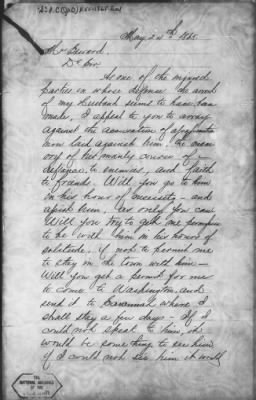 May 24th 1865
Mr Seward
Dr Sir.
As one of the injured
parties in whose defense the arrest
of my Husband seems to have been
made, I appeal to you to array
against the accusation of assassination
now laid against him, the mem
ory of his manly course of
defiance to enemies, and faith
to friends. Will you go to him
in his hour of necessity - and
assist him, as only you can
Will you try to get me permission
to be with him in his hours of
solitude. if not to permit me
to stay in the town with him -
Will you get a permit for me
to come to Washington, and
send it to Savannah where I
shall stay a few days - If I
could not speak to him, it
would be something to see him
if I could not see him it would
THE
NATIONAL ARCHIVES
OF THE